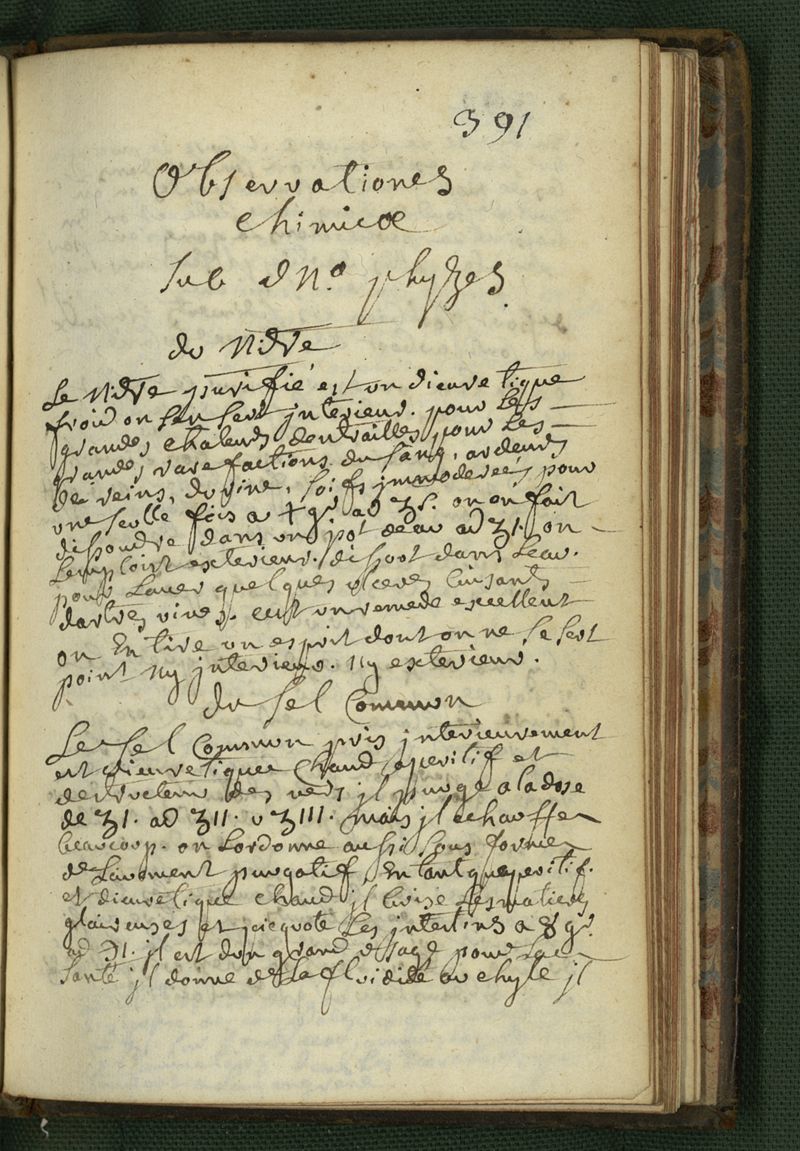 391
Observationes
Chimicæ
sub dno. phyzes.
du Nidre
Le Nidre purifié est un dieuretique
froid on sen sert interieur. pour les
grandes chaleurs dentrailles pour les
grandes rarefactions du sang, ardeurs
de reins, durine, soifs jmmoderées pour
une seulle fois a gr. ad ʒs. on en fait
dissoudre dans un pot deau ad ʒ1. on
Lemploi exterieur. dissout dans Leau.
pour Laver quelques ulceres cuisants
dartres vives. cest un remede excellent
on En tire un esprit dont on ne se sert
point ny jnterieur. ny exterieur.
du sel Commun
Le sel Commun pris jnterieurement
est dieuretique chaud aperitif et
destructeur des vers jl purge a la dose
de ʒ1. ad ʒ11. v ʒ111. mais jl echauffe
beaucoup. on Lordonne aussi sous forme
de Lavement purgatif, En tant queperitif.
et dieuretique chaud jl brise Les matieres
glaireuses et picquote Les jntestins a 8 gr.
ad ℈1. jl est dun grand usage pour La
santé jl donne de La fluidité au chyle jl